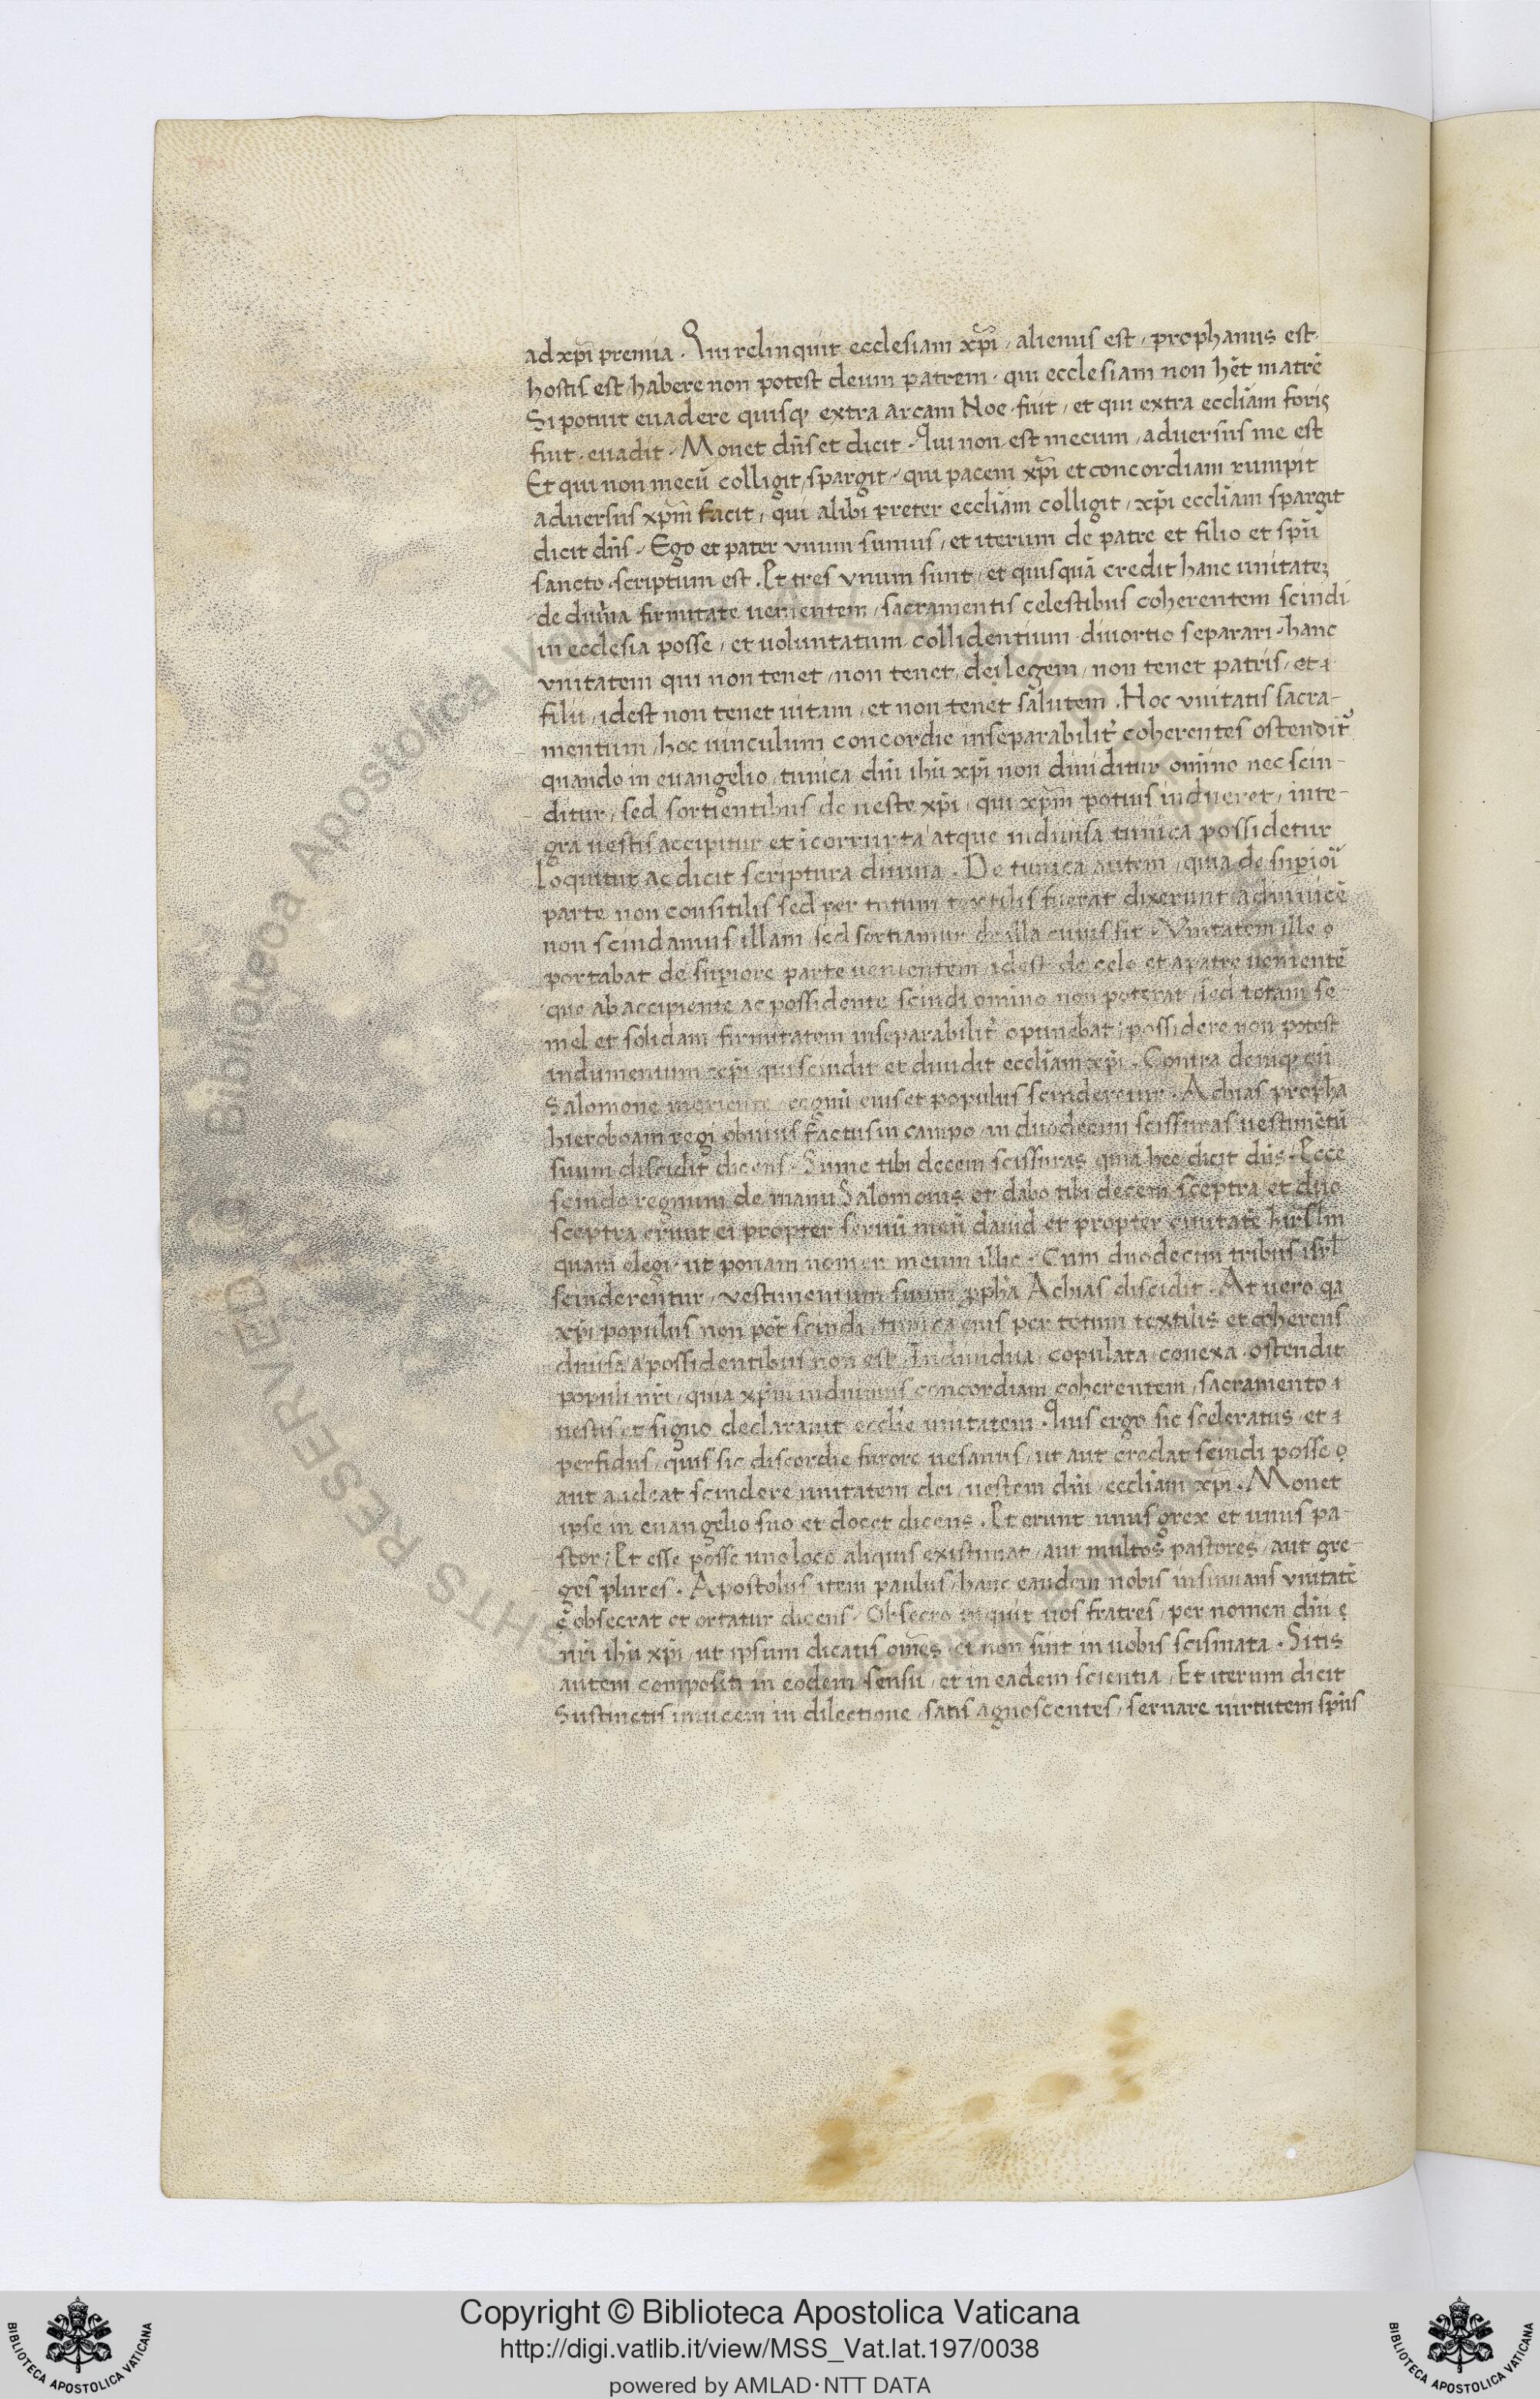 ad xp̄i premia · Qui relinquit ecclesiam xp̄i / alienus est / prophanus est ·
hostis est / habere non potest deum patrem · qui ecclesiam non hēt matrē
Si potuit euadere quisq; extra arcam Noe · fuit / et qui extra eccl̄iam foris
fuit · euadit · Monet dn̄s et dicit · Qui non est mecum / aduersus me est
Et qui non mecū colligit / spargit · qui pacem xp̄i et concordiam rumpit
aduersus xp̄m facit / qui alibi preter eccl̄iam colligit / xp̄i eccl̄iam spargit
dicit dn̄s · Ego et pater vnum sumus / et iterum de patre et filio et sp̄u
sancto · scriptum est . Et tres vnum sunt / et quisquā credit hanc unitatez
de diuīa firmitate uenientem / sacramentis celestibus coherentem scindi
in ecclesia posse / et uoluntatum collidentium diuortio separari · hanc
vnitatem qui non tenet / non tenet dei legem / non tenet patris / et
filii / idest non tenet uitam / et non tenet salutem . Hoc vnitatis sacra-
mentum / hoc uinculum concordie inseparabilit̄ coherentes ostendit̄
quando in euangelio / tunica dn̄i ihū xp̄i non diuiditur om̄ino nec scin-
ditur / sed sortientibus de ueste xp̄i / qui xp̄m potius indueret / inte-
gra uestis accipitur et ī corrupta atque indiuisa tunica possidetur
Loquitur ac dicit scriptura diuina . De tunica autem / quia de superiori
parte non consitilis sed per totum textilis fuerat dixerunt ad inuicē
non scindamus illam sed sortiamur de illa cuius sit · Vnitatem ille
portabat de supiore parte uenientem idest de celo et a patre uenientē
que ab accipiente ac possidente scindi omino non poterat / sed totam se-
mel et solidam firmitatem inseparabilit̄ optinebat / possidere non potest
indumentum xp̄i qui scindit et diuidit eccl̄iam xp̄i · Contra deniq; cū
Salomone moriente regnū eius et populus scinderetur · Achias propha
hieroboam regi obuius factus in campo in duodecim scissuras uestimētū
suum discidit dicens · Sume tibi decem scissuras quia hec dicit dn̄s · Ecce
scindo regnum de manu Salomonis et dabo tibi decem sceptra et duo
sceptra erunt ei propter seruū meū dauid et propter ciuitatē hirl̄m
quam elegi · ut ponam nomen meum illic · Cum duodecim tribus isrl̄
scinderentur / vestimentum suum ppha Achias discidit · At uero qa
xp̄i populus non pōt scindi / tunica eius per totum textilis et coherens
diuisa a possidentibus non est . Indiuidua copulata conexa ostendit
populi nr̄i / quia xp̄m induimus concordiam coherentem / sacramento
uestis et signo declarauit eccl̄ie unitatem · Quis ergo sic sceleratus et
perfidus / quis sic discordie furore uesanus / ut aut credat scindi posse
aut audeat scindere unitatem dei / uestem dn̄i / eccl̄iam xp̄i . Monet
ipse in euangelio suo et docet dicens . Et erunt unus grex et unus pa-
stor / Et esse posse uno loco aliquis existimat / aut multos pastores / aut gre-
ges plures . Apostolus item paulus / hanc eandem nobis insinuans vnitatē
obsecrat et ortatur dicens · Obsecro inquit uos fratres / per nomen dn̄i
nr̄i ihū xp̄i / ut ipsum dicatis om̄es / et non sint in uobis scismata · Sitis
autem compositi in eodem sensu / et in eadem scientia / Et iterum dicit
Sustinetis inuicem in dilectione / satis agnoscentes / seruare uirtutem sp̄us
© Biblioteca Apostolica Vaticana ALL RIGHTS RESERVED
Copyright © Biblioteca Apostolica Vaticana
http://digi.vatlib.it/view/MSS_Vat.lat.197/0038
powered by AMLAD·NTT DATA
BIBLIOTECA APOSTOLICA VATICANA
BIBLIOTECA APOSTOLICA VATICANA